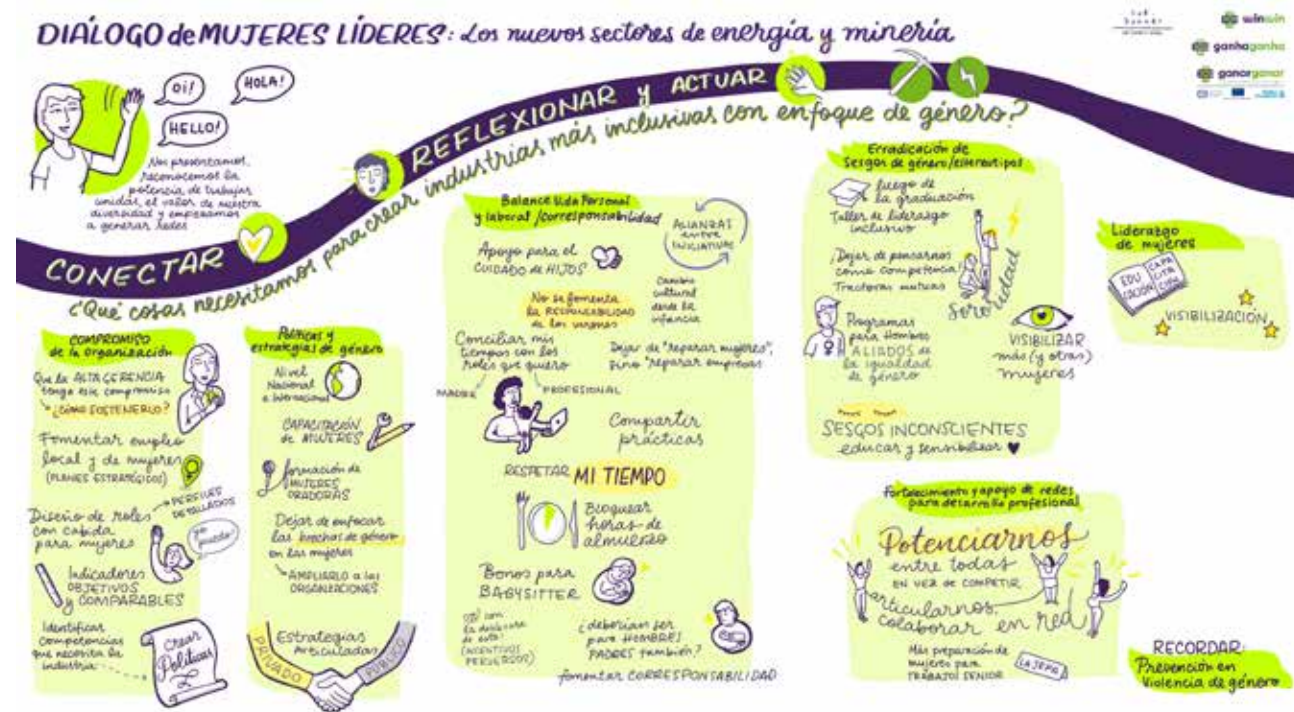 DIÁLOGO de MUJERES LÍDERES: Los nuevos sectores de energía y minería
winwin
ganhaganha
ganarganar
Oi!
HOLA!
HELLO!
Nos presentamos,
reconocemos la
potencia de trabajar
unidas, el valor de nuestra
diversidad y empezamos
a generar redes
CONECTAR
REFLEXIONAR y ACTUAR
¿Qué cosas necesitamos para crear industrias más inclusivas con enfoque de género?
COMPROMISO
de la organización
Que la ALTA GERENCIA
tenga ese compromiso
¿CÓMO SOSTENERLO?
Fomentar empleo
local y de mujeres
(PLANES ESTRATÉGICOS)
PERFILES
DETALLADOS
Diseño de roles
con cabida
para mujeres
Yo
puedo!
Indicadores
OBJETIVOS
y COMPARABLES
Identificar
competencias
que necesita la
industria
Crear
Políticas
Políticas y
estrategias de género
Nivel
Nacional
e Internacional
CAPACITACIÓN
de MUJERES
formación de
MUJERES
ORADORAS
Dejar de enfocar
las brechas de género
en las mujeres
AMPLIARLO a las
ORGANIZACIONES
Estrategias
Articuladas
PRIVADO
PÚBLICO
Balance Vida Personal
y laboral/corresponsabilidad
ALIANZAS
entre
INICIATIVAS
Apoyo para el
CUIDADO de HIJOS
No se fomenta
la RESPONSABILIDAD
de los varones
Cambio
cultural
desde la
infancia
Conciliar mis
tiempos con los
roles que quiero
MADRE
PROFESIONAL
Dejar de "reparar mujeres",
sino "reparar empresas
Compartir
prácticas
RESPETAR MI TIEMPO
Bloquear
horas de
almuerzo
Bonos para
BABYSITTER
con
de esto!
(INCENTIVOS
PERVERSOS)
¿deberían ser
para HOMBRES
PADRES también?
fomentar CORRESPONSABILIDAD
Erradicación de
Sesgos de género/estereotipos
luego de
la graduación
Taller de liderazgo
inclusivo
Dejar de pensarnos
como competencia!
Tractoras mutuas
Sororidad
Programas
para Hombres
ALIADOS de
la igualdad
de género
VISIBILIZAR
más (y otras)
mujeres
SESGOS INCONSCIENTES
educar y sensibilizar
Liderazgo
de mujeres
EDU
CACIÓN
CAPA
CITA
CIÓN
VISIBILIZACIÓN
Fortalecimiento y apoyo de redes
para desarrollo profesional
Potenciarnos
entre todas
EN VEZ DE COMPETIR
articularnos,
colaborar en red
Más preparación de
mujeres para
TRABAJOS SENIOR
LA JEFA
RECORDAR:
Prevención en
Violencia de género